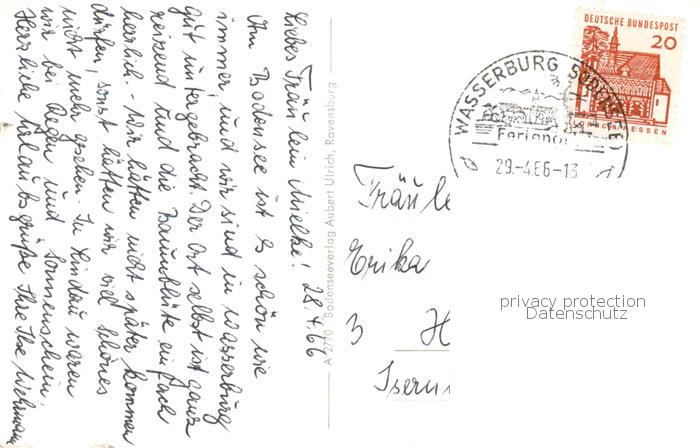 Liebes Fräulein Mielke! 28.4.66
Am Bodensee ist es schön wie
immer, und wir sind in Wasserburg
gut untergebracht. Der Ort selbst ist ganz
reizend und die Baumblüte einfach
herrlich. - Wir hätten nicht später kommen
dürfen, sonst hätten wir viel Schönes
nicht mehr gesehen. In Lindau waren
wir bei Regen und Sonnenschein.
Herzliche Urlaubsgrüße Ihre Ilse
A 2770 Bodenseeverlag Aubert Ulrich, Ravensburg
DEUTSCHE BUNDESPOST
20
LORSCH/HESSEN
WASSERBURG (BODENSEE)
29.-4.66-13
Fräule
Erika
3 H
Iser
privacy protection
Datenschutz